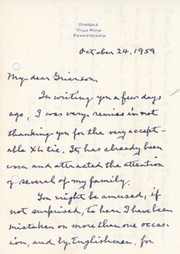 DUNDALE
VILLA NOVA
PENNSYLVANIA
October 24, 1959
My dear Grierson:
In writing you a few days
ago, I was very remiss in not
thanking you for the very accept-
able XL tie. It has already been
worn and attracted the attention
of several of my family.
You might be amused, if
not surprised, to hear I have been
mistaken on more than one occa-
sion, and by Englishmen, for